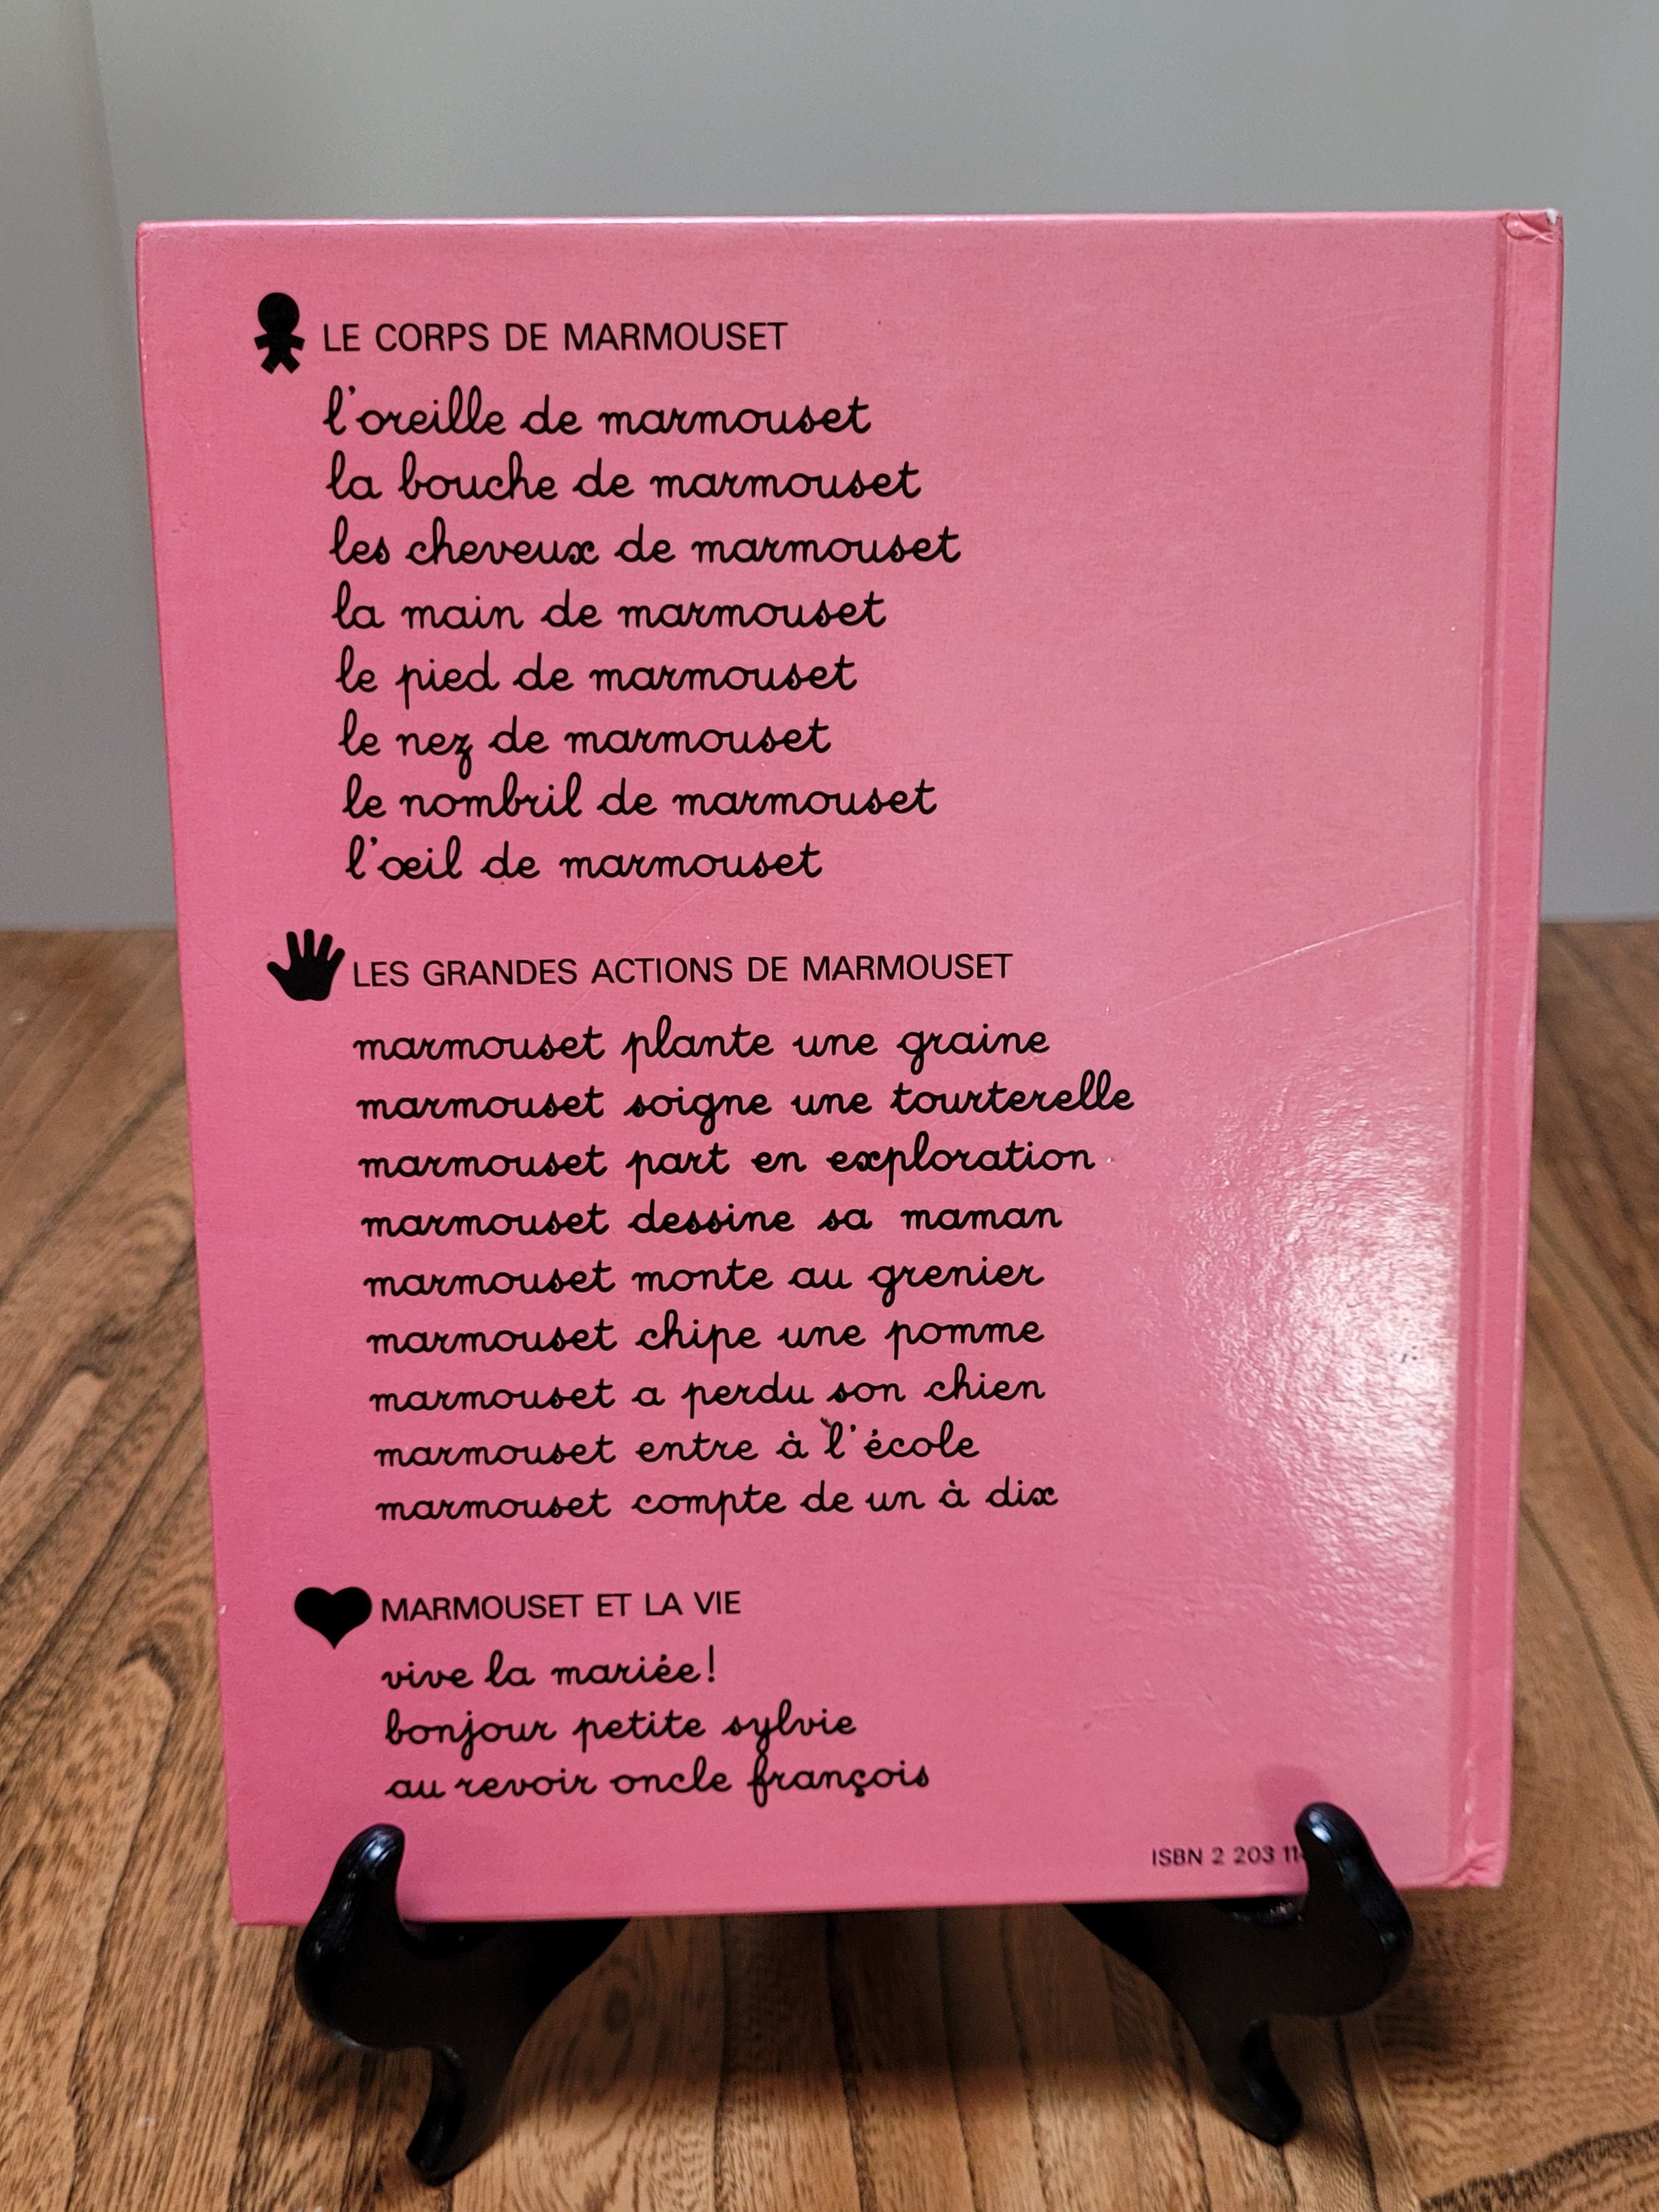 LE CORPS DE MARMOUSET
l'oreille de marmouset
la bouche de marmouset
les cheveux de marmouset
la main de marmouset
le pied de marmouset
le nez de marmouset
le nombril de marmouset
l'œil de marmouset
LES GRANDES ACTIONS DE MARMOUSET
marmouset plante une graine
marmouset soigne une tourterelle
marmouset part en exploration
marmouset dessine sa maman
marmouset monte au grenier
marmouset chipe une pomme
marmouset a perdu son chien
marmouset entre à l'école
marmouset compte de un à dix
MARMOUSET ET LA VIE
vive la mariée!
bonjour petite sylvie
au revoir oncle françois
ISBN 2 203